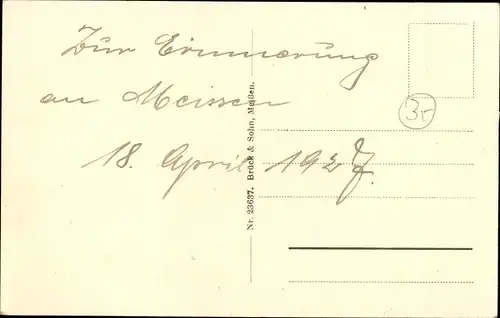 Zur Erinnerung
an Meissen
18. April 1927.
Nr. 23637. Brück & Sohn, Meißen.